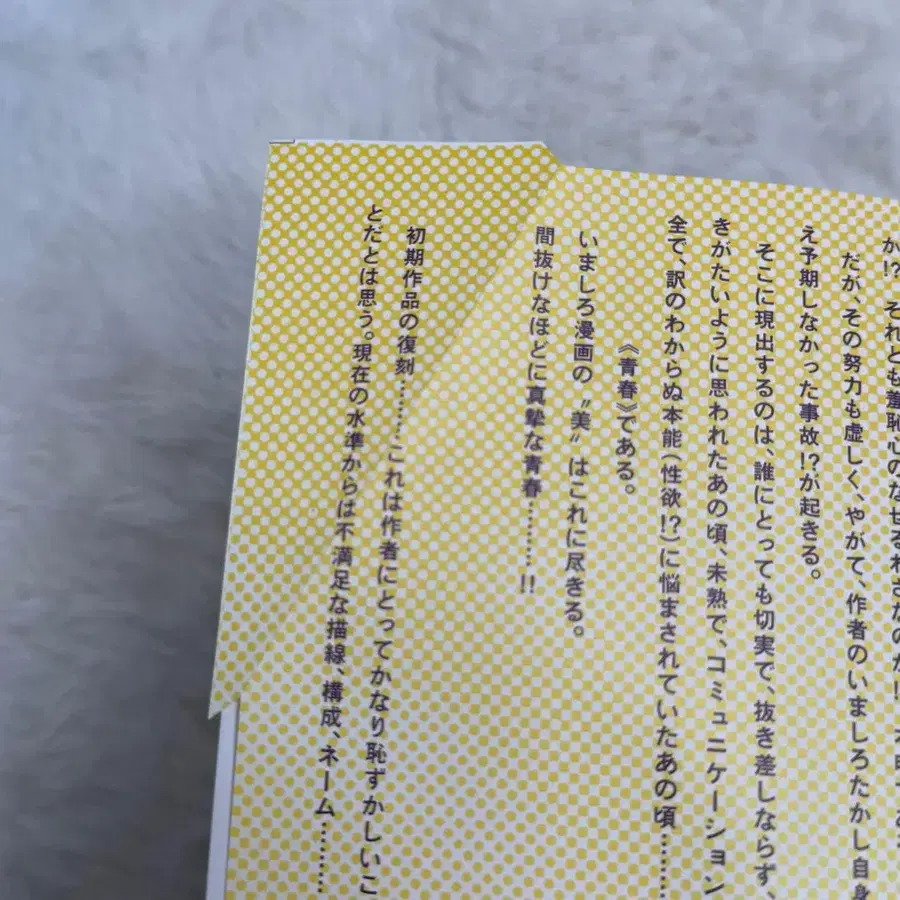 か!? それとも羞恥心のなせるわざなのか!
だが、その努力も虚しく、やがて、作者のいましろたかし自身
え予期しなかった事故!?が起きる。
そこに現出するのは、誰にとっても切実で、抜き差しならず、
きがたいように思われたあの頃、未熟で、コミュニケーション
全で、訳のわからぬ本能(性欲!?)に悩まされていたあの頃………
《青春》である。
いましろ漫画の〝美〟はこれに尽きる。
間抜けなほどに真摯な青春………!!
初期作品の復刻………これは作者にとってかなり恥ずかしいこ
とだとは思う。現在の水準からは不満足な描線、構成、ネーム………